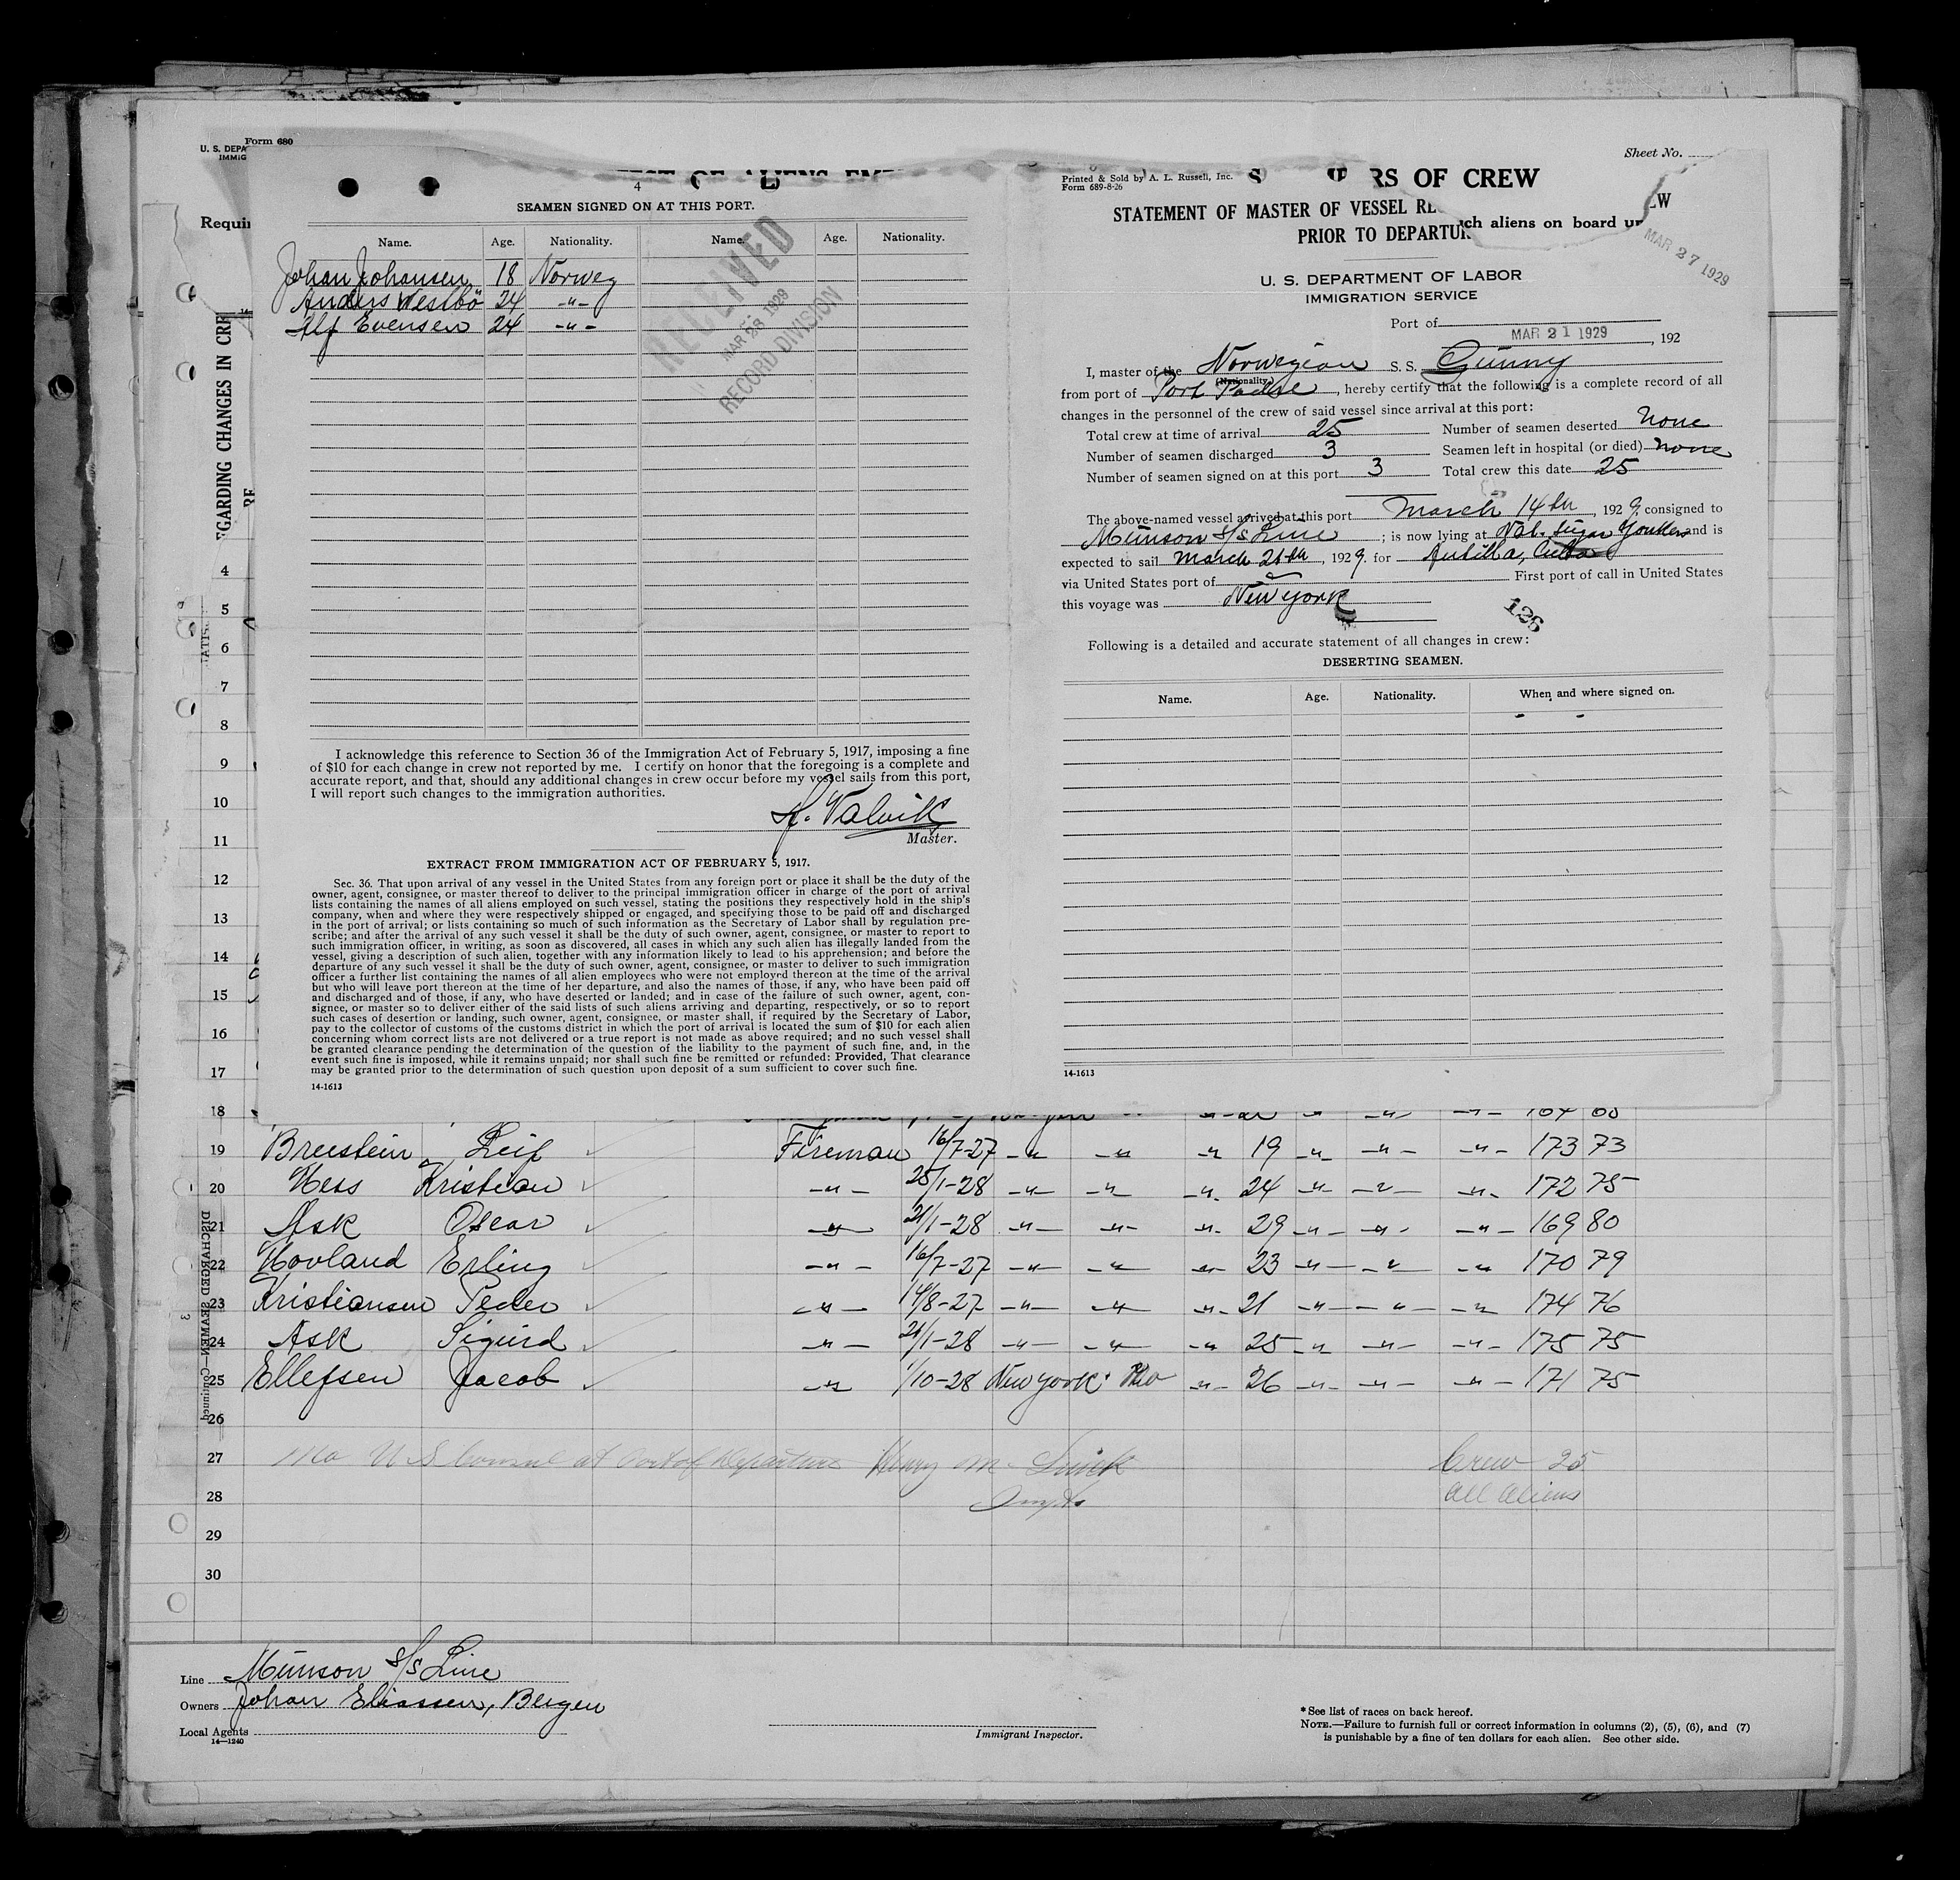 Form 680
U. S. DEPA
IMMIG
Sheet No.
Requir
4
SEAMEN SIGNED ON AT THIS PORT.
Name. Age. Nationality. Name. Age. Nationality.
Johan Johansen 18 Norweg
Anders Westbö 24 -"-
Alf Evensen 24 -"-
RECEIVED
MAR 28 1929
RECORD DIVISION
I acknowledge this reference to Section 36 of the Immigration Act of February 5, 1917, imposing a fine
of $10 for each change in crew not reported by me. I certify on honor that the foregoing is a complete and
accurate report, and that, should any additional changes in crew occur before my vessel sails from this port,
I will report such changes to the immigration authorities.
Valvik
Master.
EXTRACT FROM IMMIGRATION ACT OF FEBRUARY 5, 1917.
Sec. 36. That upon arrival of any vessel in the United States from any foreign port or place it shall be the duty of the
owner, agent, consignee, or master thereof to deliver to the principal immigration officer in charge of the port of arrival
lists containing the names of all aliens employed on such vessel, stating the positions they respectively hold in the ship's
company, when and where they were respectively shipped or engaged, and specifying those to be paid off and discharged
in the port of arrival; or lists containing so much of such information as the Secretary of Labor shall by regulation pre-
scribe; and after the arrival of any such vessel it shall be the duty of such owner, agent, consignee, or master to report to
such immigration officer, in writing, as soon as discovered, all cases in which any such alien has illegally landed from the
vessel, giving a description of such alien, together with any information likely to lead to his apprehension; and before the
departure of any such vessel it shall be the duty of such owner, agent, consignee, or master to deliver to such immigration
officer a further list containing the names of all alien employees who were not employed thereon at the time of the arrival
but who will leave port thereon at the time of her departure, and also the names of those, if any, who have been paid off
and discharged and of those, if any, who have deserted or landed; and in case of the failure of such owner, agent, con-
signee, or master so to deliver either of the said lists of such aliens arriving and departing, respectively, or so to report
such cases of desertion or landing, such owner, agent, consignee, or master shall, if required by the Secretary of Labor,
pay to the collector of customs of the customs district in which the port of arrival is located the sum of $10 for each alien
concerning whom correct lists are not delivered or a true report is not made as above required; and no such vessel shall
be granted clearance pending the determination of the question of the liability to the payment of such fine, and, in the
event such fine is imposed, while it remains unpaid; nor shall such fine be remitted or refunded: Provided, That clearance
may be granted prior to the determination of such question upon deposit of a sum sufficient to cover such fine.
14-1613
Printed & Sold by A. L. Russell, Inc.
Form 689-8-26
RS OF CREW
STATEMENT OF MASTER OF VESSEL RE
EW
ch aliens on board u
PRIOR TO DEPARTUR
MAR 27 1929
U. S. DEPARTMENT OF LABOR
IMMIGRATION SERVICE
Port of
MAR 21 1929 , 192
I, master of the Norwegian S. S. Gunny
(Nationality.)
from port of Port Padre , hereby certify that the following is a complete record of all
changes in the personnel of the crew of said vessel since arrival at this port:
Total crew at time of arrival 25 Number of seamen deserted None
Number of seamen discharged 3 Seamen left in hospital (or died) None
Number of seamen signed on at this port 3 Total crew this date 25
The above-named vessel arrived at this port March 14th , 1929. consigned to
Munson S/S Line ; is now lying at Nat. Sugar Yonkers and is
expected to sail March 21th , 1929. for Antilla, Cuba
via United States port of First port of call in United States
this voyage was New York
126
Following is a detailed and accurate statement of all changes in crew:
DESERTING SEAMEN.
Name. Age. Nationality. When and where signed on.
14-1613
GARDING CHANGES IN CRE
4
5
6
7
8
9
10
11
12
13
14
15
16
17
18
DISCHARGED SEAMEN—Continued
3
19 Breistein Leif Fireman 16/7-27 -"- -"- -"- 19 -"- -"- -"- 173 73
20 Hess Kristian -"- 25/1-28 -"- -"- -"- 24 -"- -"- -"- 172 75
21 Ask Oscar -"- 21/1-28 -"- -"- -"- 29 -"- -"- -"- 169 80
22 Hovland Erling -"- 16/7-27 -"- -"- -"- 23 -"- -"- -"- 170 79
23 Kristiansen Peder -"- 14/8-27 -"- -"- -"- 21 -"- -"- -"- 174 76
24 Ask Sigurd -"- 21/1-28 -"- -"- -"- 25 -"- -"- -"- 175 75
25 Ellefsen Jacob -"- 1/10-28 New York No -"- 26 -"- -"- -"- 171 75
26
27 No U S Consul at Port of Departure Henry M. Crew 25
28 All Aliens
29
30
Line Munson S/S Line
Owners Johan Eliassen, Bergen
Local Agents
14—1240
Immigrant Inspector.
* See list of races on back hereof.
NOTE.—Failure to furnish full or correct information in columns (2), (5), (6), and (7)
is punishable by a fine of ten dollars for each alien. See other side.